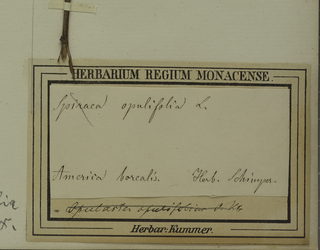 HERBARIUM REGIUM MONACENSE.
Spiraea opulifolia L.
America borealis. Herb. Schimper.
Opulaster opulifolius O. Ktz
Herbar: Kummer.